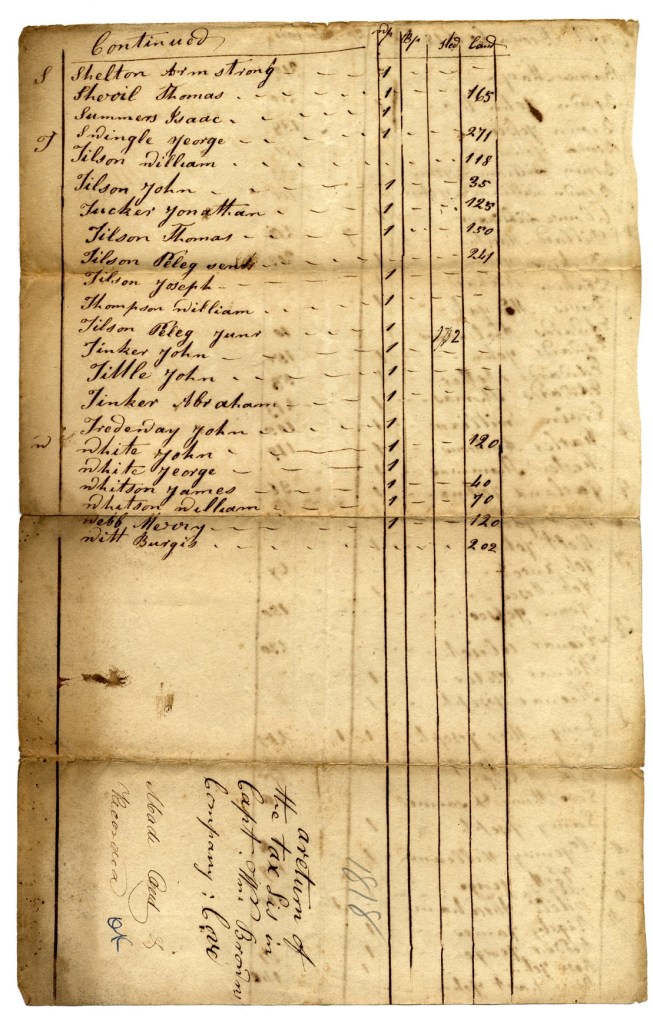 Continued wp Bp sted Land
S Shelton Armstrong - - - 1 - -
Shevil Thomas - - - - 1 - - 165
Summers Isaac - - - - 1
Swingle George - - - - 1 - - 271
T Tilson William - - - - - - 118
Tilson John - - - - 1 - - 35
Tucker Jonathan - - - 1 - - 125
Tilson Thomas - - - - 1 - - 150
Tilson Peleg senr - - - - - 241
Tilson Joseph - - - - 1 - - -
Thompson William - - - 1
Tilson Peleg Junr - - - 1 - 2
Tinker John - - - - 1 - - -
Tittle John - - - - 1
Tinker Abraham - - - 1
Tredeway John - - - 1 - - -
W White John - 1 - - 120
White George - - - - 1
Whitson James - - - - 1 - - 40
Whitson William - - - 1 - - 70
Webb Merry - - - - 1 - - 120
Witt Burgis - - - - - - 202
a return of
the tax Lis in
Capt. Wm Brown
Company: Cove
Made Out &
Recorded
1818